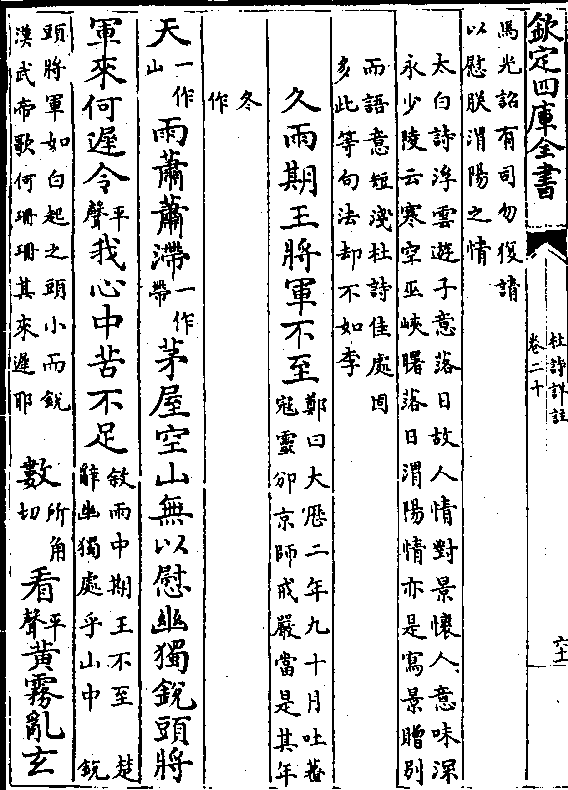 欽定四庫全書
杜詩詳註
卷二十
馬光詔有司勿復請
以慰朕渭陽之情
太白詩浮雲遊子意落日故人情對景懷人意味深
永少陵云寒空巫峽曙落日渭陽情亦是寫景贈別
而語意短淺杜詩佳處固
多此等句法却不如李
久雨期王將軍不至
鄭曰大歷二年九十月吐蕃
寇靈邠京師戒嚴當是其年
冬
作
天
一作
山
雨蕭蕭滯
一作
帶
茅屋空山無以慰幽獨銳頭將
軍來何遲令
平
聲
我心中苦不足
敘雨中期王不至
辭幽獨處乎山中
楚
銳
頭將軍如白起之頭小而銳
漢武帝歌何珊珊其來遲耶
數
所角
切
看
平
聲
黃霧亂玄